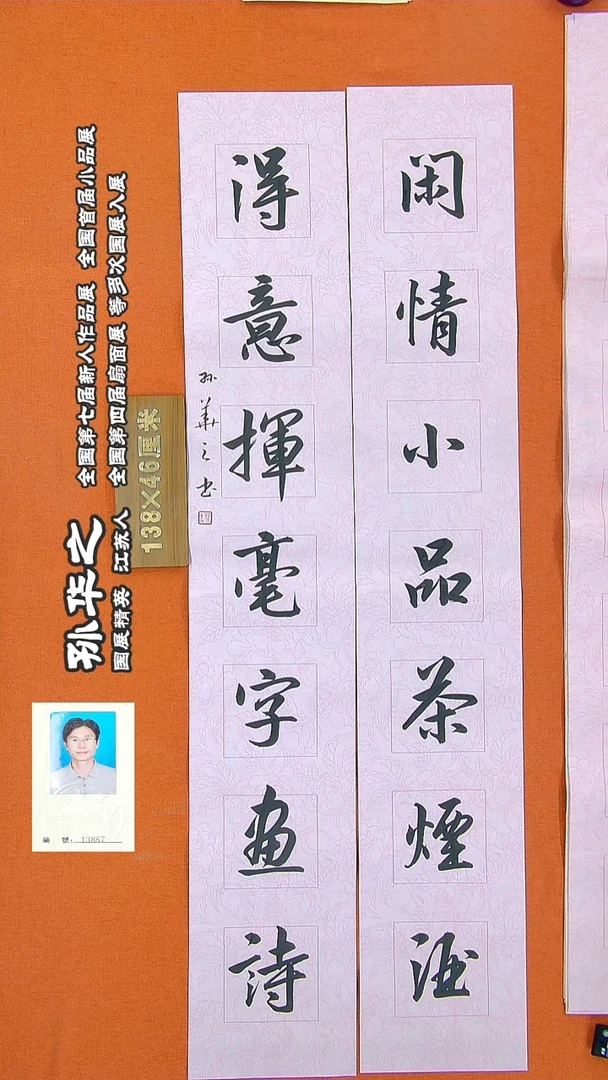 闲情小品茶煙酒
得意揮毫字画詩
孙華之书
孙华之
国展精英 江苏人
全国第七届新人作品展 全国首届小品展
全国第四届扇面展 等多次国展入展
138×46厘米
編號：13857